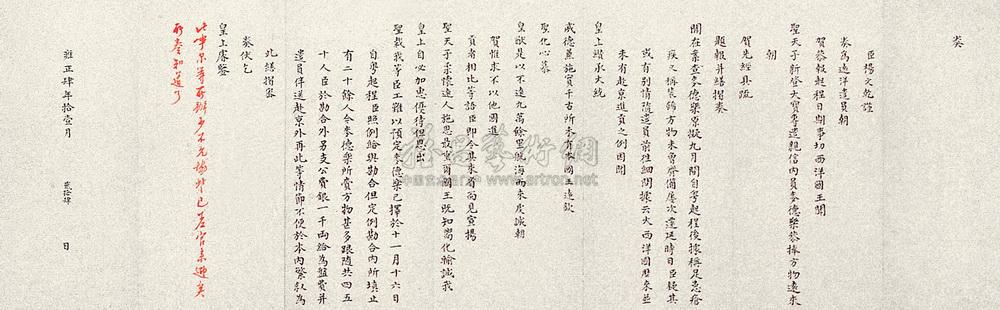 奏
臣楊文乾謹
奏為遠洋遣員朝
賀恭報起程日期事切西洋國王聞
聖天子新登大寶專遣親信內員麥德樂恭捧方物遠來
朝
賀先經具疏
題報并繕摺奏
聞在案查麥德樂原擬九月間自粵起程後據稱足患瘡
疾又稱裝釘方物未曾齊備屢次遲延時日臣疑其
或有別情隨遣員前往細問據云大西洋國歷來並
未有赴京進貢之例因聞
皇上纘承大統
威德兼施實千古所未有本國王遠欽
聖化心慕
皇猷是以不遠九萬餘里航海而來虔誠朝
賀惟求不以他國進
貢者相比等語臣即令其來省面見宣揚
聖天子柔懷遠人施恩最重爾國王既知嚮化輸誠我
皇上自必加惠優待但恩出
聖裁我等臣工難以預定麥德樂已擇於十一月十六日
自粵起程臣照例給與勘合但定例勘合內所填止
有二十餘人今麥德樂所賫方物甚多跟隨共四五
十人臣於勘合外另支公費銀一千兩給為盤費并
遣員伴送赴京外再此等情節不便於本內繁叙為
此繕摺密
奏伏乞
皇上睿鑒
所奏知道了
雍正肆年拾壹月 日
雅昌藝術網
www.artron.net